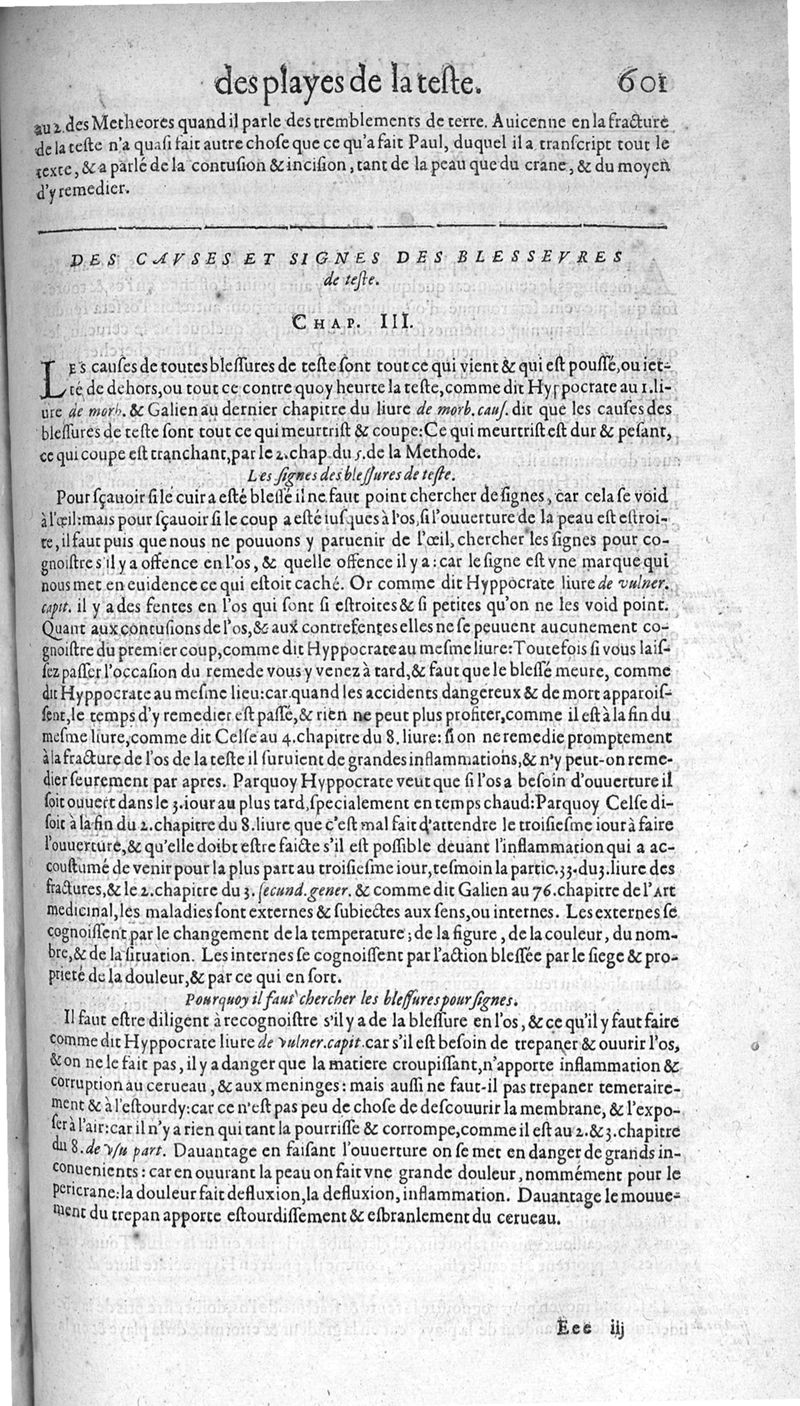 des playes de la teste. 601
au 2. des Metheores quand il parle des tremblements de terre. Auicenne en la fracture
de la teste n'a quasi fait autre chose que ce qu'a fait Paul, duquel il a transcript tout le
texte, & a parlé de la contusion & incision, tant de la peau que du crane, & du moyen
d'y remedier.
DES CAVSES ET SIGNES DES BLESSEVRES
de teste.
CHAP. III.
LES causes de toutes blessures de teste sont tout ce qui vient & qui est poussé, ou iet-
té de dehors, ou tout ce contre quoy heurte la teste, comme dit Hyppocrate au 1. li-
ure de morb. & Galien au dernier chapitre du liure de morb. caus. dit que les causes des
blessures de teste sont tout ce qui meurtrist & coupe: Ce qui meurtrist est dur & pesant,
ce qui coupe est tranchant, par le 2. chap. du 5. de la Methode.
Les signes des blessures de teste.
Pour sçauoir si le cuir a esté blessé il ne faut point chercher de signes, car cela se void
à l'œil: mais pour sçauoir si le coup a esté iusques à l'os, si l'ouuerture de la peau est estroi-
te, il faut puis que nous ne pouuons y paruenir de l'œil, chercher les signes pour co-
gnoistre s'il y a offence en l'os, & quelle offence il y a: car le signe est vne marque qui
nous met en euidence ce qui estoit caché. Or comme dit Hyppocrate liure de vulner.
capit. il y a des fentes en l'os qui sont si estroites & si petites qu'on ne les void point.
Quant aux contusions de l'os, & aux contrefentes elles ne se peuuent aucunement co-
gnoistre du premier coup, comme dit Hyppocrate au mesme liure: Toutefois si vous lais-
sez passer l'occasion du remede vous y venez à tard, & faut que le blessé meure, comme
dit Hyppocrate au mesme lieu: car quand les accidents dangereux & de mort apparois-
sent, le temps d'y remedier est passé, & rien ne peut plus profiter, comme il est à la fin du
mesme liure, comme dit Celse au 4. chapitre du 8. liure: si on ne remedie promptement
à la fracture de l'os de la teste il suruient de grandes inflammations, & n'y peut-on reme-
dier seurement par apres. Parquoy Hyppocrate veut que si l'os a besoin d'ouuerture il
soit ouuert dans le 3. iour au plus tard, specialement en temps chaud: Parquoy Celse di-
soit à la fin du 2. chapitre du 8. liure que c'est mal fait d'attendre le troisiesme iour à faire
l'ouuerture, & qu'elle doibt estre faicte s'il est possible deuant l'inflammation qui a ac-
coustumé de venir pour la plus part au troisiesme iour, tesmoin la partic. 33. du 3. liure des
fractures, & le 2. chapitre du 3. secund. gener. & comme dit Galien au 76. chapitre de l'Art
medicinal, les maladies sont externes & subiectes aux sens, ou internes. Les externes se
cognoissent par le changement de la temperature, de la figure, de la couleur, du nom-
bre, & de la situation. Les internes se cognoissent par l'action blessée par le siege & pro-
prieté de la douleur, & par ce qui en sort.
Pourquoy il faut chercher les blessures pour signes.
Il faut estre diligent à recognoistre s'il y a de la blessure en l'os, & ce qu'il y faut faire
comme dit Hyppocrate liure de vulner. capit. car s'il est besoin de trepaner & ouurir l'os,
& on ne le fait pas, il y a danger que la matiere croupissant, n'apporte inflammation &
corruption au cerueau, & aux meninges: mais aussi ne faut-il pas trepaner temeraire-
ment & à l'estourdy: car ce n'est pas peu de chose de descouurir la membrane, & l'expo-
ser à l'air: car il n'y a rien qui tant la pourrisse & corrompe, comme il est au 2. & 3. chapitre
du 8. de vsu part. Dauantage en faisant l'ouuerture on se met en danger de grands in-
conuenients: car en ouurant la peau on fait vne grande douleur, nommément pour le
pericrane: la douleur fait defluxion, la defluxion, inflammation. Dauantage le mouue-
ment du trepan apporte estourdissement & esbranlement du cerueau.
Eee iij